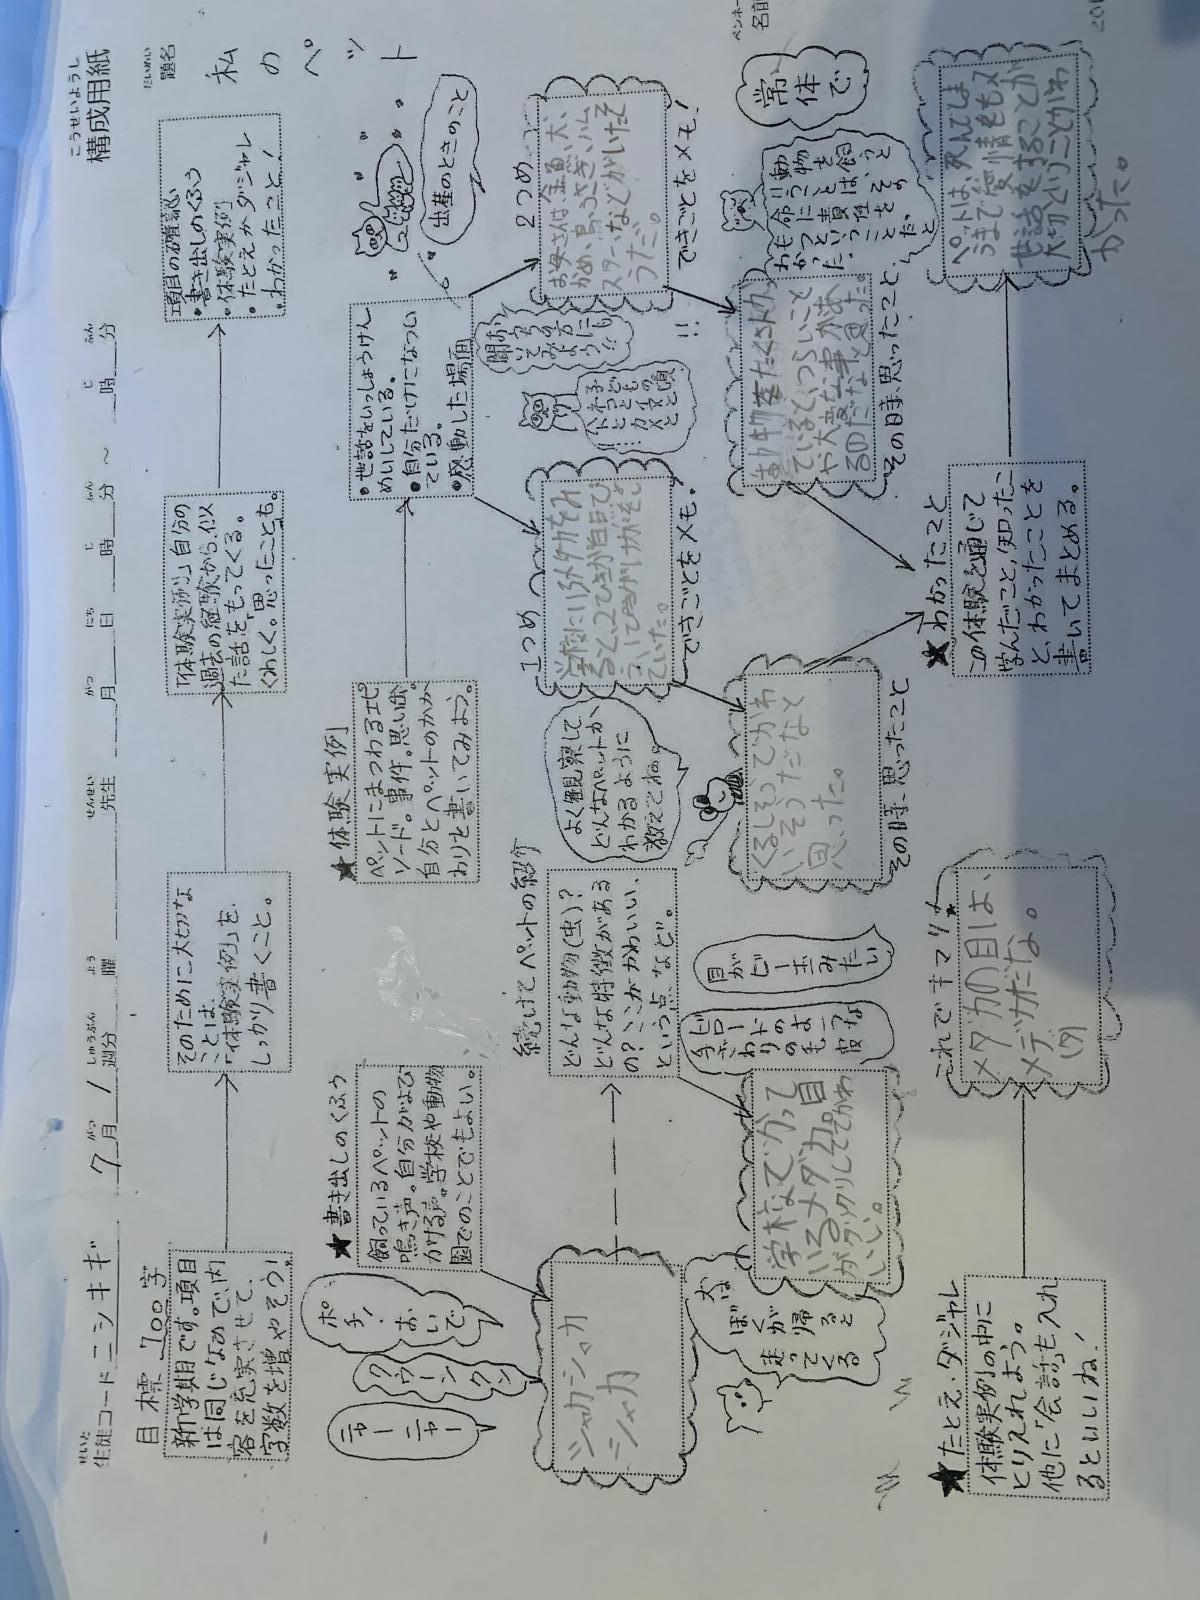 こうせいようし
構成用紙
だいめい
題名
私のペット
ペンネーム
名前
せいと
生徒コード ニシキギ
7 がつ
月 1 しゅうぶん
週分 よう
曜
せんせい
先生
がつ
月 にち
日 じ
時 ふん
分 ～ じ
時 ふん
分
目標 700字
新学期です。項目
は同じなので、内
容を充実させて、
字数を増やそう!
そのために大切な
ことは、
「体験実例」を、
しっかり書くこと。
「体験実例」自分の
過去の経験から、似
た話をもってくる。
くわしく。思ったことも。
項目の確認
•書き出しのくふう
•体験実例
•たとえかダジャレ
•わかったこと!
★書き出しのくふう
飼っているペットの
鳴き声。自分がよび
かける声。学校や動物
園でのことでもよい。
ポチ!おいで
クウーンクン
ニャーニャー
シャカシャカ
シャカ
続けてペットの紹介
どんな動物(虫)?
どんな特徴がある
の?ここがかわいい、
という点、など。
よく観察して、
どんなペットか
わかるように
教えてね。
犬は
ぼくが
帰ると
走って
くる
学校でかって
いるメダカ。目
がクリクリしててかわ
いい。
手ざわり
のよーな
目が
ビー玉
みたい
★体験実例
ペットにまつわるエピ
ソード。事件。思い出。
自分とペットのかか
わりを書いてみよう。
•世話をいっしょうけん
めいしている。
•自分だけになつい
ている。
•感動した場面
出産のときのこと
1つめ
学校にいるメダカをみ
ると、22ひきが白目でひ
ていた。
できごとをメモ。
くるしそうでかわ
いそうだなと
思った。
その時、思ったこと
2つめ
お母さんは、金魚、犬、
かめ、鳥、うさぎ、ハム
スターなどがいたそ
うだ。
できごとをメモ!
おうちの方に
聞いてみよう!?
!!
生き物をたくさんか
っているとつらいこと
や大変な事があ
るのだなと思った。
その時、思ったこと
★わかったこと
この体験を通じて
学んだこと、知ったこ
と、わかったことを
書いてまとめる。
動物を飼うと
いうことは、その
命に責任を
もつということだと
わかった
常体で
ペットは、死んでしま
うまで愛情をもって
世話をすることが
大切ということがわ
かった。
★たとえ・ダジャレ
体験実例の中に
とりいれよう。
他に「会話」も入れ
るといいね!
これでキマリ!
メダカの目は、
メデカだな。
(タ)